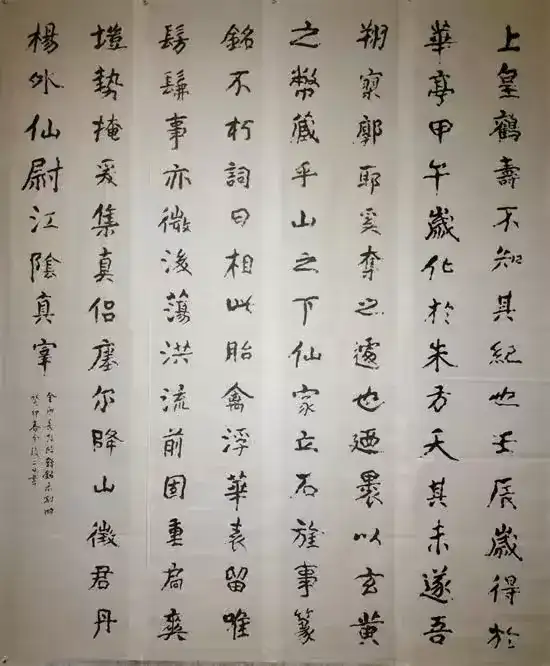 上皇鶴壽不知其紀也壬辰歲得於
華亭甲午歲化於朱方天其未遂吾
翔寥廓耶奚奪之遽也廼裹以玄黃
之幣藏乎山之下仙家立石旌事篆
銘不朽詞曰相此胎禽浮華表留唯
髣髴事亦微浚蕩洪流前固重扃爽
塏勢掩爰集真侶瘞尔降山徵君丹
楊外仙尉江陰真宰
癸卯春